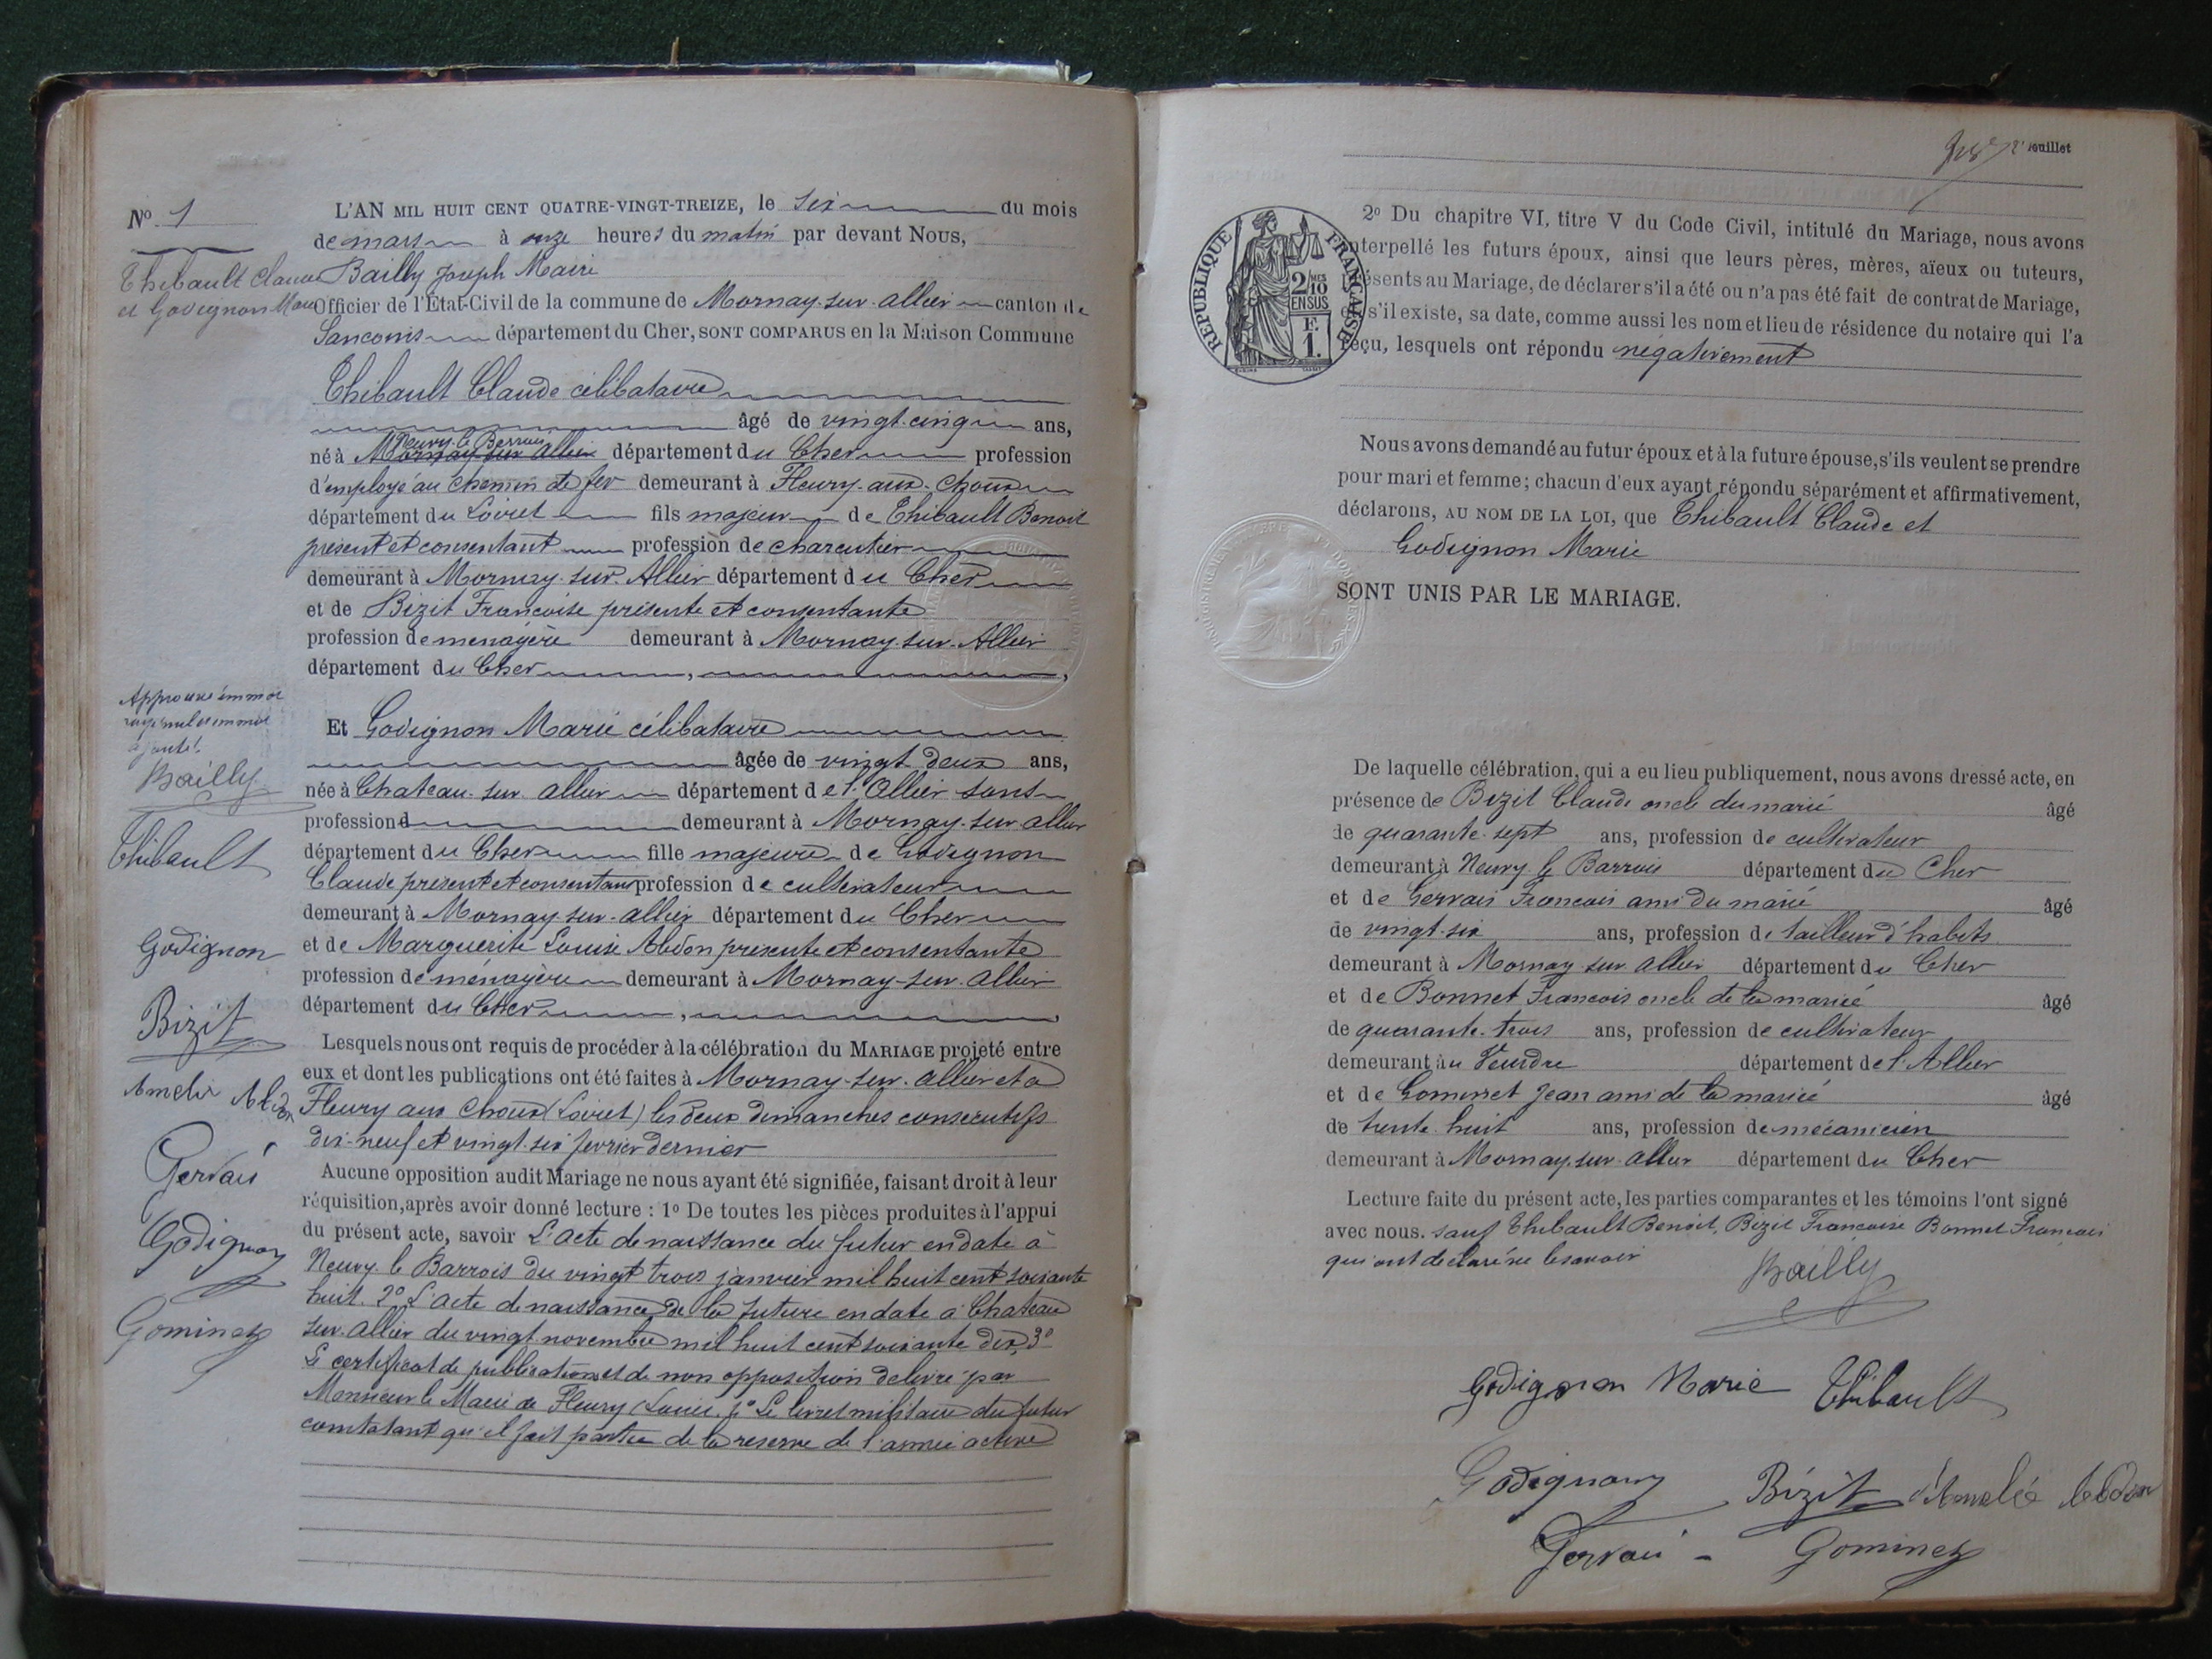 N° 1
Thibault Claude
et Godignon Marie
L'AN MIL HUIT CENT QUATRE-VINGT-TREIZE, le six du mois
de mars à onze heures du matin par devant Nous,
Bailly Joseph Maire
Officier de l'État-Civil de la commune de Mornay-sur-allier canton de
Sancoins département du Cher, SONT COMPARUS en la Maison Commune
Thibault Claude célibataire
âgé de vingt-cinq ans,
Neuvy-le Barrois
né à Mornay sur Allier département du Cher profession
d'employé au chemin de fer demeurant à Fleury-aux-Choux
département du Loiret fils majeur de Thibault Benoit
présent et consentant profession de charcutier
demeurant à Mornay-sur-Allier département du Cher
et de Bizit Françoise présente et consentante
profession de ménagère demeurant à Mornay-sur-Allier
département du Cher
Et Godignon Marie célibataire
âgée de vingt deux ans,
née à Chateau-sur-allier département de l'Allier sans
profession demeurant à Mornay-sur-allier
département du Cher fille majeure de Godignon
Claude présent et consentant profession de cultivateur
demeurant à Mornay-sur-allier département du Cher
et de Marguerite Louise Abdon présente et consentante
profession de ménagère demeurant à Mornay-sur-allier
département du Cher
Lesquels nous ont requis de procéder à la célébration du MARIAGE projeté entre
eux et dont les publications ont été faites à Mornay-sur-allier et à
Fleury aux Choux (Loiret) les deux dimanches consecutifs
dix-neuf et vingt-six fevrier dernier
Aucune opposition audit Mariage ne nous ayant été signifiée, faisant droit à leur
réquisition, après avoir donné lecture : 1° De toutes les pièces produites à l'appui
du présent acte, savoir L'acte de naissance du futur en date à
Neuvy le Barrois du vingt trois janvier mil huit cent soixante
huit. 2° L'acte de naissance de la future en date à Chateau
sur-allier du vingt novembre mil huit cent soixante dix, 3°
Le certificat de publications et de non opposition delivré par
Monsieur le Maire de Fleury Le livret militaire du futur
constatant qu'il fait partie de la reserve de l'armée active
Approuvé
Bailly
Thibault
Godignon
Bizit
Amelie
Gervais
Godignon
Gominet
feuillet
REPUBLIQUE FRANÇAISE
2/10 EN SUS
F. 1.
2° Du chapitre VI, titre V du Code Civil, intitulé du Mariage, nous avons
interpellé les futurs époux, ainsi que leurs pères, mères, aïeux ou tuteurs,
présents au Mariage, de déclarer s'il a été ou n'a pas été fait de contrat de Mariage,
et s'il existe, sa date, comme aussi les nom et lieu de résidence du notaire qui l'a
reçu, lesquels ont répondu négativement
Nous avons demandé au futur époux et à la future épouse, s'ils veulent se prendre
pour mari et femme; chacun d'eux ayant répondu séparément et affirmativement,
déclarons, AU NOM DE LA LOI, que Thibault Claude et
Godignon Marie
SONT UNIS PAR LE MARIAGE.
De laquelle célébration, qui a eu lieu publiquement, nous avons dressé acte, en
présence de Bizit Claude oncle du marié âgé
de quarante-sept ans, profession de cultivateur
demeurant à Neuvy le Barrois département du Cher
et de Gervais Francois ami du marié âgé
de vingt-six ans, profession de tailleur d'habits
demeurant à Mornay sur allier département du Cher
et de Bonnet Francois oncle de la mariée âgé
de quarante-trois ans, profession de cultivateur
demeurant au Veurdre département de l'Allier
et de Gominet Jean ami de la mariée âgé
de trente-huit ans, profession de mécanicien
demeurant à Mornay-sur-allier département du Cher
Lecture faite du présent acte, les parties comparantes et les témoins l'ont signé
avec nous. sauf Thibault Benoit, Bizit Francoise Bonnet Francois
qui ont declaré ne le savoir
Bailly
Godignon Marie Thibault
Godignon Bizit Amelie
Gervais Gominet